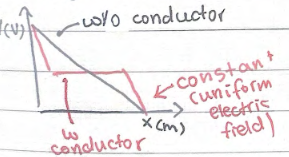 V(V)
w/o conductor
constant
(uniform
electric
field)
w
conductor
x(m)